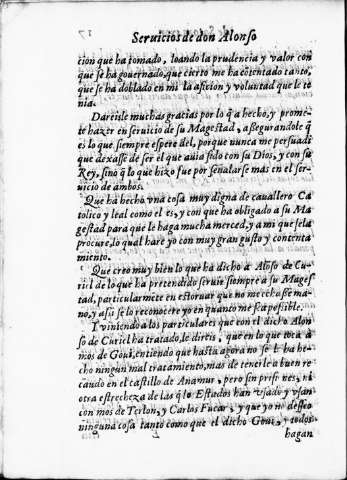 Seruicios de don Alonso
cion que ha tomado, loando la prudencia y valor con
que se ha gouernado, que cierto me ha cōtentado tanto,
que se ha doblado en mi la aficion y voluntad que le te
nia.
Dareisle muchas gracias por lo q̄ a hecho, y prome
te hazer en seruicio de su Magestad, aßegurandole q̄
es lo que siempre esperè del, porque nunca me persuadi
que dexasse de ser el que auia sido con su Dios, y con su
Rey, sino q̄ lo que hizo fue por señalarse mas en el ser-
uicio de ambos.
Que ha hecho vna cosa muy digna de cauallero Ca
tolico y leal como el es, y con que ha obligado a su Ma
gestad para que le haga mucha merced, y a mi que se la
procure, lo qual harè yo con muy gran gusto y contenta
miento.
Que creo muy bien lo que ha dicho a Alōso de Cu-
riel de lo que ha pretendido seruir siempre a su Mages
tad, particularmēte en estoruar que no me echaßē ma-
no, y aßi se lo reconocerè yo en quanto me sea poßible.
Y viniendo a los particulares que con el dicho Alon
so de Curiel ha tratado, le direis, que en lo que toca a
mos de Goui, entiendo que hasta agora no se le ha he-
cho ningun mal tratamiento, mas de tenerle a buen re
caudo en el castillo de Anamur, pero sin prisiones, ni
otra estrecheza de las q̄ los Estados han vsado y vsan
con mos de Terlon, y Carlos Fucar, y que yo no desseo
ninguna cosa tanto como que el dicho Goui, y todos
hagan